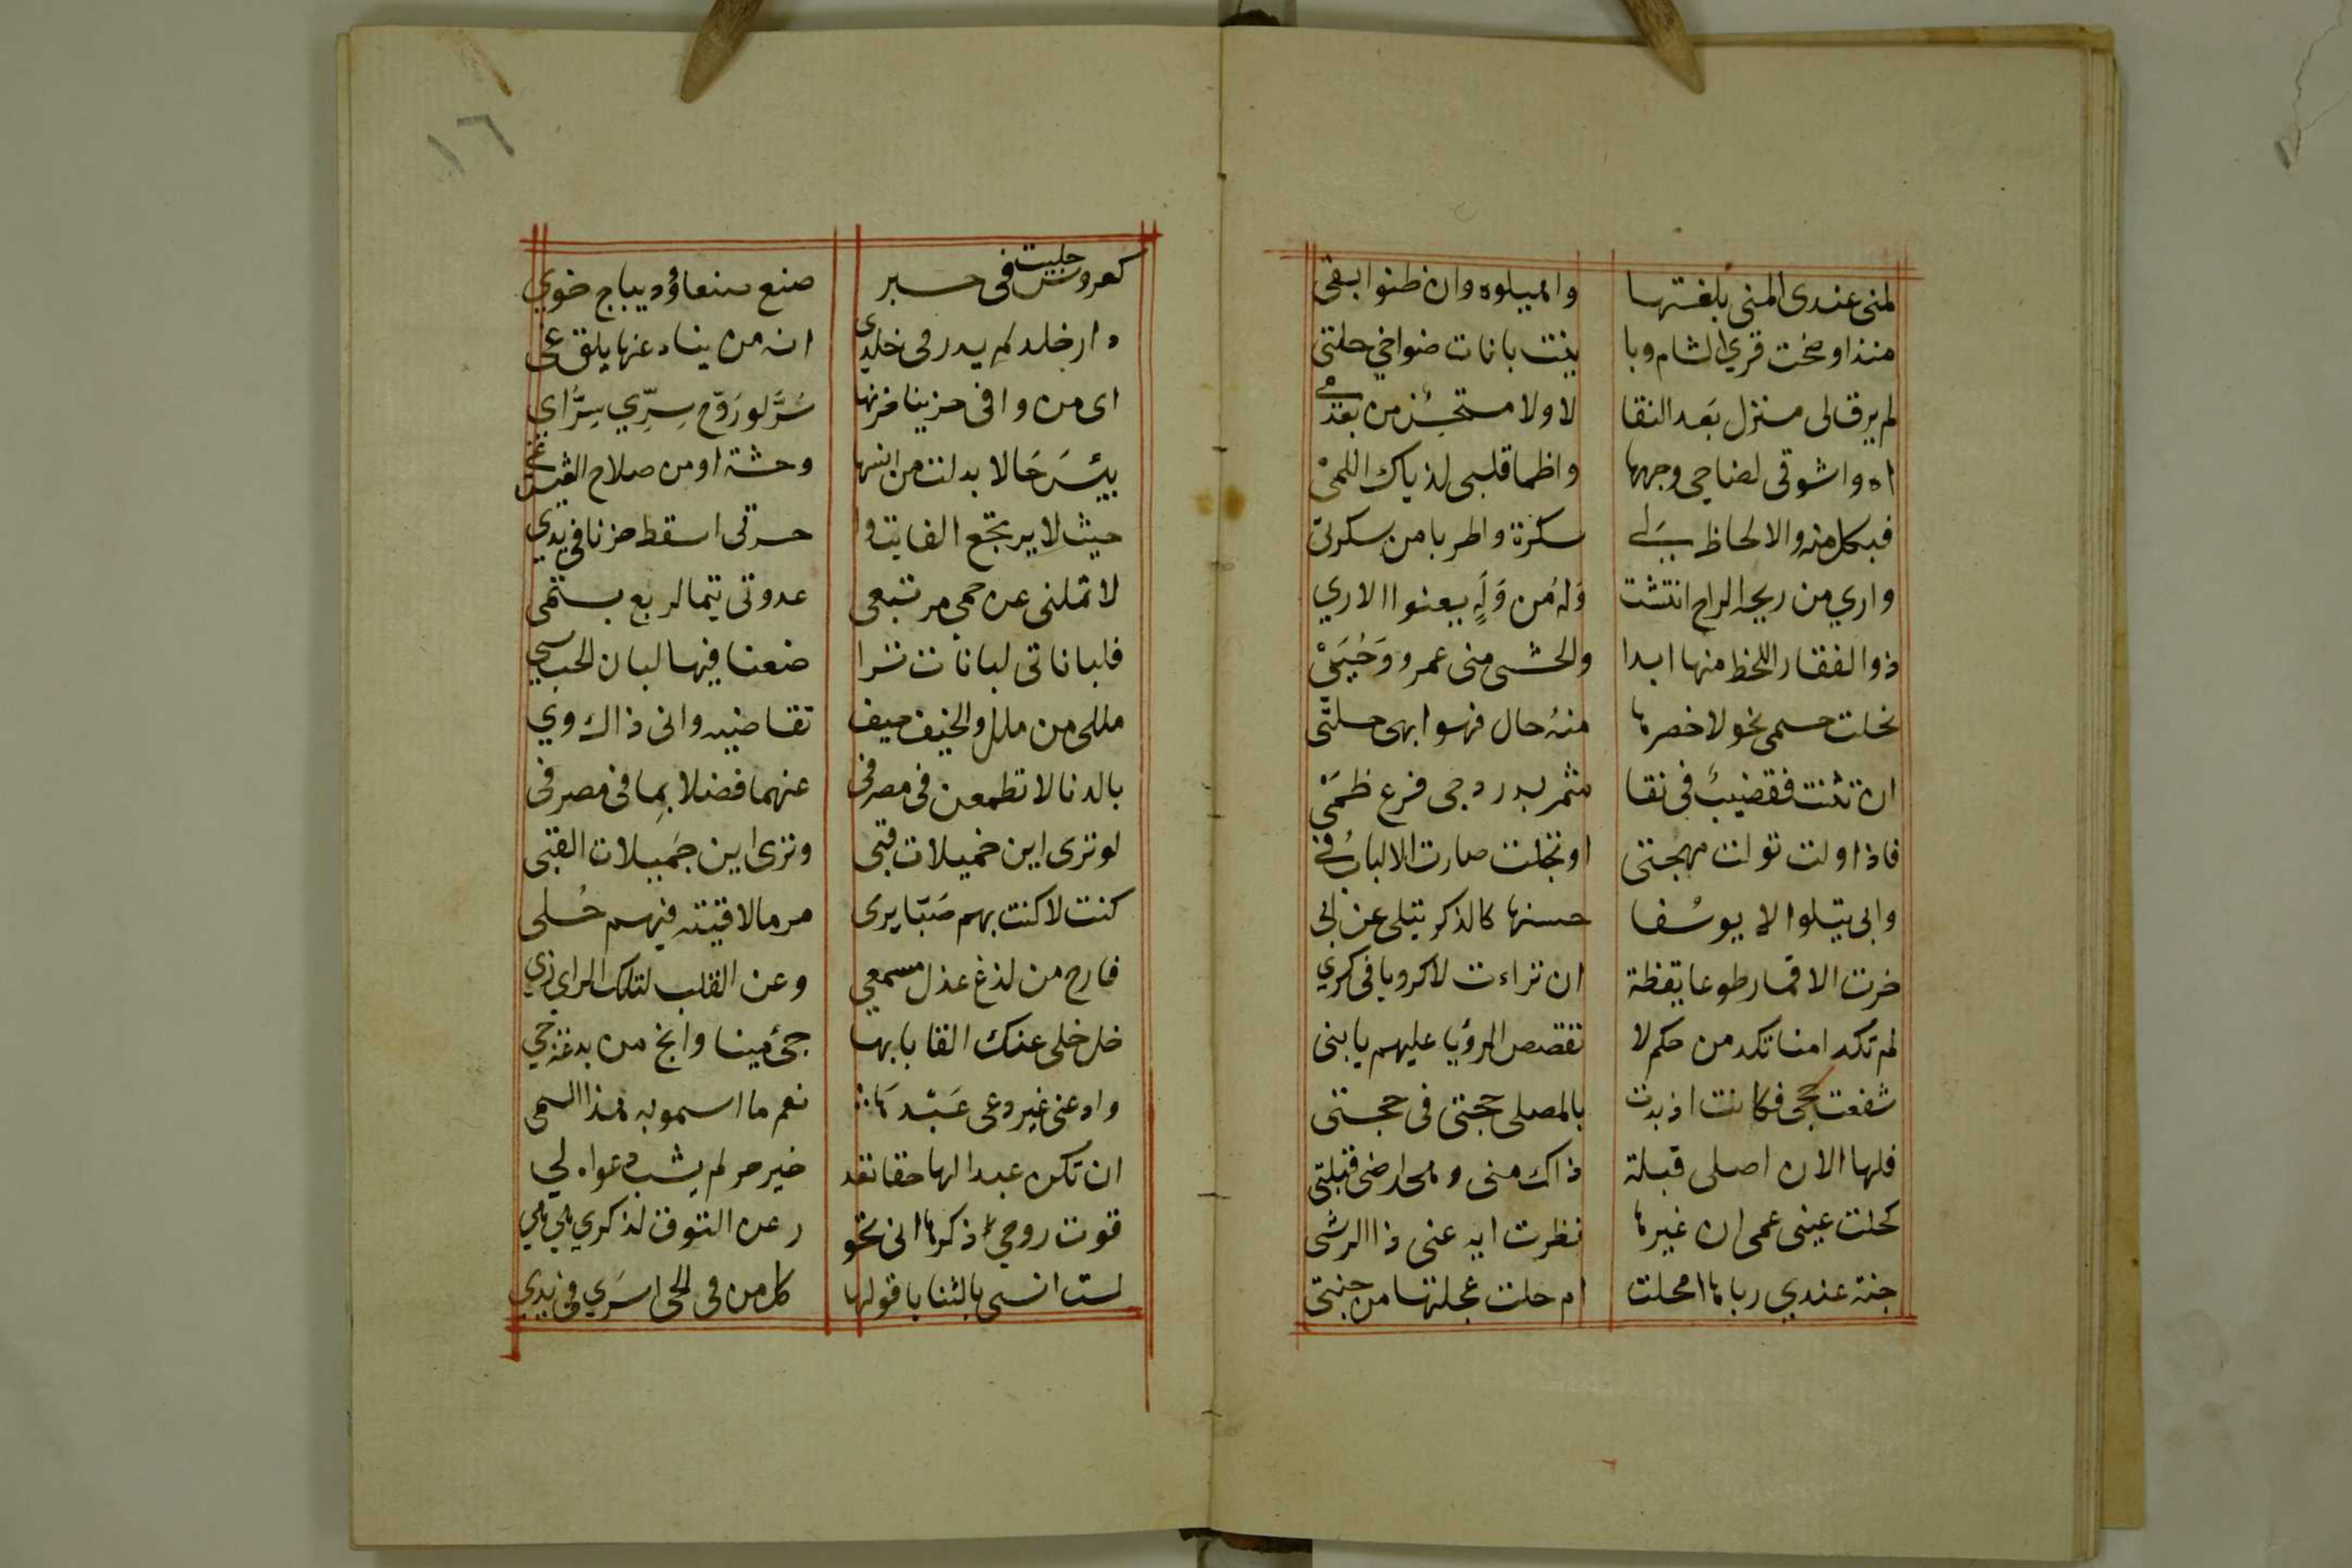 لمنى عندى المنى بلغتها واهيلوه وان ظنوا بفى
منذ اوضحت قرى الشام وبا ينت بانات ضواحي حلتى
لم يرق لى منزل بَعد النقا لا ولا مستحسن من بعد مي
اه واشوقى لضاحى وجهها واظما قلبى لذياك اللمىْ
فبكل منه والالحاظ لي سكرة واطربا من سكرتىّ
واري من ريحه الراح انتشت وله من وَلَهٍ يعنوا الاري
ذوالفقار اللحظ منها ابدا والحشى منى عمرو وَحُيَىْ
نحلت جسمى نحولا خصرها منه حال فهو ابهى حلتّى
ان تثنت فقضيبٌ فى نقا مثمر بدر دجى فرع ظمَىْ
فاذا ولت تولت مهجتى او تجلت صارت الالباب فى
وابى يتلوا الا يوسُفا حسنها كالذكر يتلى عن ابى
خرت الاقمار طوعا يقظة ان تراءت لا كرويا فى كرى
لم تكد امنا تكد من حكم لا تقصص الرؤيا عليهم يا بنى
شفعت حجى فكانت اذ بدت بالمصلى حجتى فى حجتى
فلها الان اصلى قبلة ذاك منى وهى ارضى قبلتى
كحلت عينى عمى ان غيرها نظرت ايه عنى ذا الرشى
جنة عندي رباها امحلت ام حلت عجلتها من جنتى
١٦
كعروس جليت فى حبر صنع صنعاؤ ديباج خوي
دار خلد لم يدر فى خلدى انه من يناء عنها يلق غى
اى من وافى حزينا حزنها سُرَّ لو رَوّح سِرِّي سِرُّ اي
بئسَ حَالا بدلت من انسها وحشة او من صلاح العيش غى
حيث لا يرتجع الفايت وا حسرتى اسقط حزنا فى يدي
لا تملنى عن حمى مرتبعى عدوتى تيما لربع بستمى
فلباناتى لبانات ترا ضعنا فيها لبان الحب سي
مللى من ملل والخيف حيف تقاضيه وانى ذاك وي
بالدنا لا تطمعن فى مصرفى عنهما فضلا بما فى مصر فى
لو ترى اين خميلات قبى وترى اين جَميلات القبى
كنت لا كنت بهم صَبّا يرى مر ما لاقيته فيهم حُلى
فارح من لذغ عذل مسمعي وعن القلب لتلك الراى زي
خل خلى عنك القابا بها جئ مينا وانج من بدعة جي
وادعنى غير دعى عَبْدهَا نعم ما اسمو به هذا السمى
ان تكن عبدا لها حقا تعد خير حر لم يشب دعواه لي
قوت روحي ذكرها انى تحو ر عن التوق لذكري هي هي
لست انسى بالثنايا قولها كل من فى الحى اسرى فى يدي